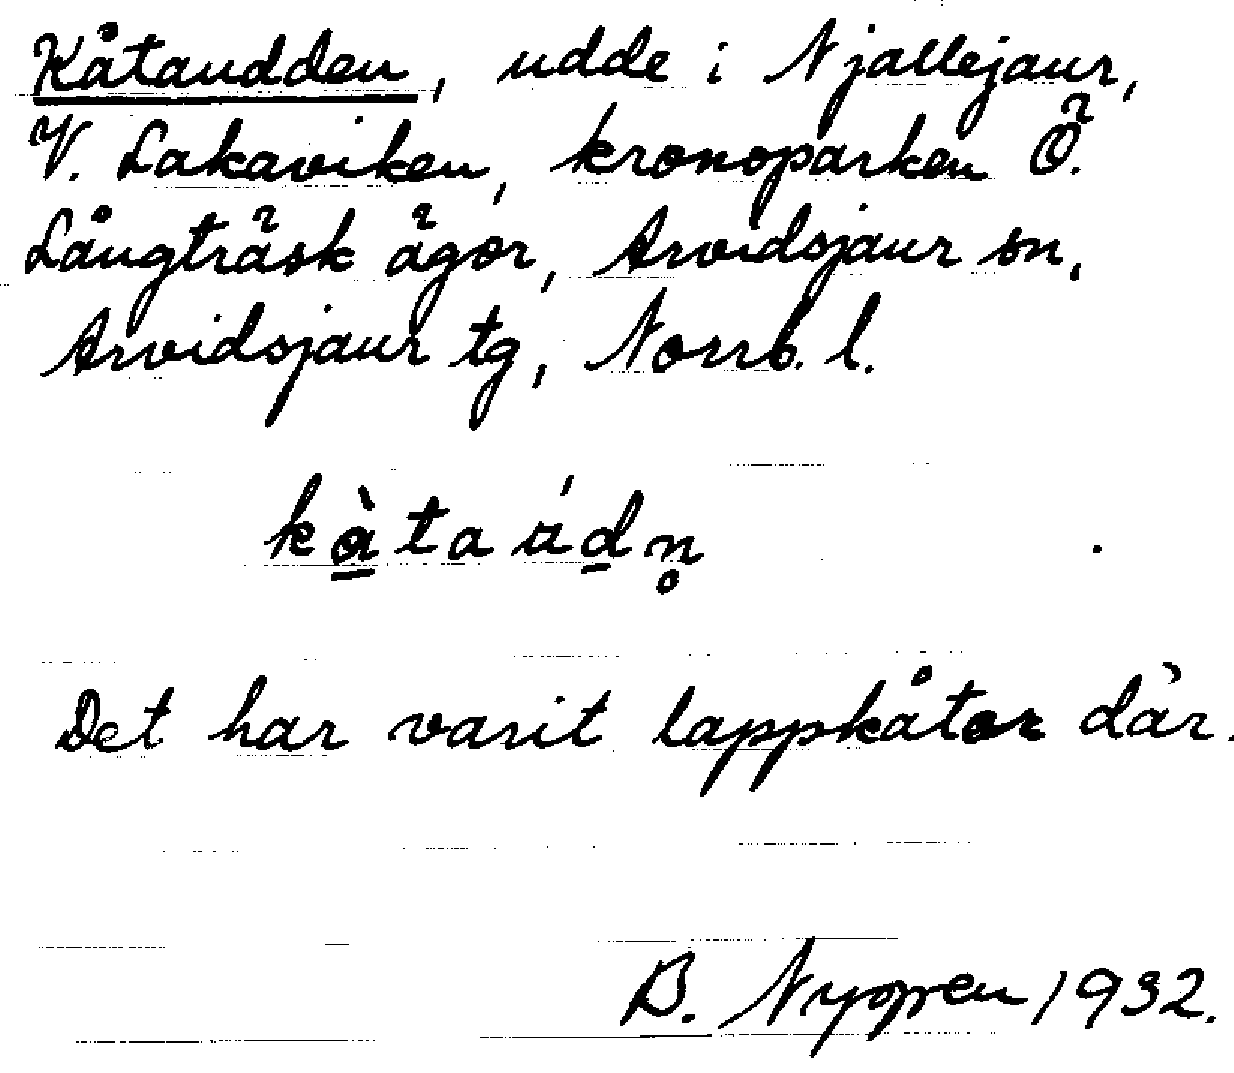 Kåtaudden, udde i Njallejaur,
V. Lakaviken, kronoparken Ö.
Långträsk ägor, Arvidsjaur sn,
Arvidsjaur tg, Norrb. l.
kàta údn̥
Det har varit lappkåtor där.
B. Nyopen 1932.